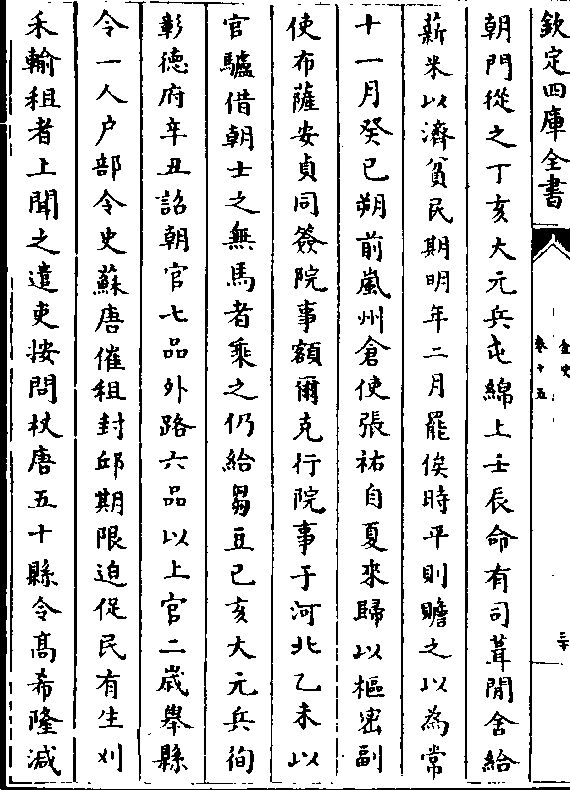 欽定四庫全書
金史
卷十五
三十
朝門從之丁亥大元兵屯綿上壬辰命有司葺閒舍給
薪米以濟貧民期明年二月罷俟時平則贍之以為常
十一月癸巳朔前嵐州倉使張祐自夏來歸以樞密副
使布薩安貞同簽院事額爾克行院事于河北乙未以
官驢借朝士之無馬者乘之仍給芻豆己亥大元兵徇
彰德府辛丑詔朝官七品外路六品以上官二歲舉縣
令一人户部令史蘇唐催租封邱期限迫促民有生刈
禾輸租者上聞之遣吏按問杖唐五十縣令髙希隆減